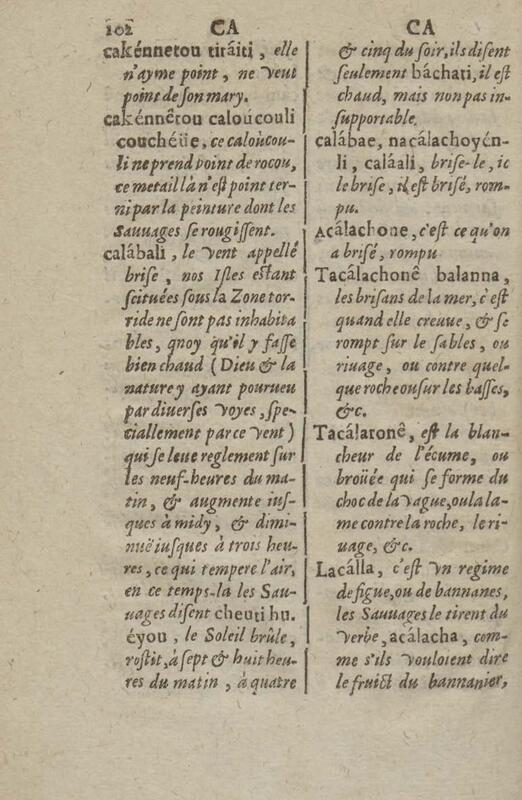 102 CA
cakénnetou tiráiti, elle
n'ayme point, ne veut
point de son mary.
cakénnêtou caloúcouli
couchéüe, ce caloùcou-
li ne prend point de rocou,
ce metail là n'est point ter-
ni par la peinture dont les
Sauuages se rougissent.
calábali, le vent appellé
brise, nos Isles estant
scituées sous la Zone tor-
ride ne sont pas inhabita
bles, quoy qu'il y fasse
bien chaud (Dieu & la
nature y ayant pourueu
par diuerses voyes, spe-
ciallement par ce vent)
qui se leue reglement sur
les neuf-heures du ma-
tin, & augmente ius-
ques à midy, & dimi-
nuë iusques à trois heu-
res, ce qui tempere l'air,
en ce temps-la les Sau-
uages disent cheuti hu.
éyou, le Soleil brûle,
rostit, à sept & huit heu-
res du matin, à quatre
CA
& cinq du soir, ils disent
seulement báchati, il est
chaud, mais non pas in-
supportable.
calábae, nacálachoyén-
li, caláali, brise-le, ie
le brise, il est brisé, rom-
pu.
Acálachone, c'est ce qu'on
a brisé, rompu
Tacálachonê balanna,
les brisans de la mer, c'est
quand elle creuue, & se
rompt sur le sables, ou
riuage, ou contre quel-
que roche ou sur les basses,
&c.
Tacálaronê, est la blan-
cheur de l'écume, ou
broüée qui se forme du
choc de la vague, ou la la-
me contre la roche, le ri-
uage, &c.
Lacálla, c'est vn regime
de figue, ou de bannanes,
les Sauuages le tirent du
verbe, acálacha, com-
me s'ils vouloient dire
le fruict du bannanier,